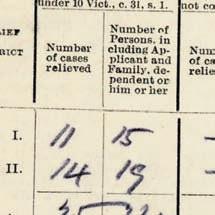 under 10 Vict., c. 31, s. 1.
not co
LIEF
TRICT
Number
of cases
relieved
Number of
Persons, in
cluding Ap-
plicant and
Family, de-
pendent or
him or her
I. 11 15 –
II. 14 19 –